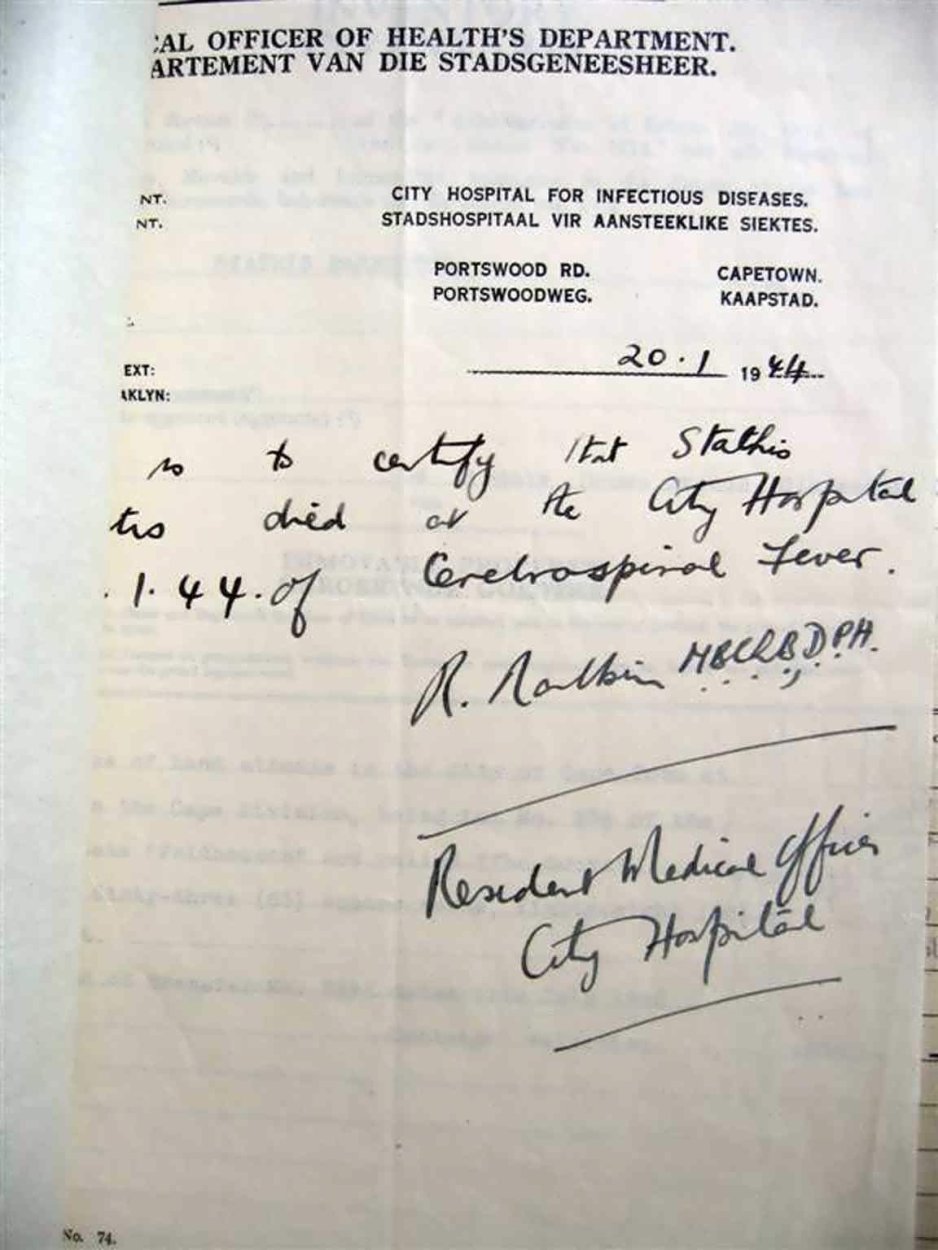 :AL OFFICER OF HEALTH'S DEPARTMENT.
ARTEMENT VAN DIE STADSGENEESHEER.
NT. CITY HOSPITAL FOR INFECTIOUS DISEASES.
NT. STADSHOSPITAAL VIR AANSTEEKLIKE SIEKTES.
PORTSWOOD RD. CAPETOWN.
PORTSWOODWEG. KAAPSTAD.
EXT: 20.1 1944
AKLYN:
is to certify that Stathis
tis died at the City Hospital
.1.44.of Cerebrospinal Fever.
R. M.B.Ch.B., D.P.H.
Resident Medical Officer
City Hospital
No. 74.